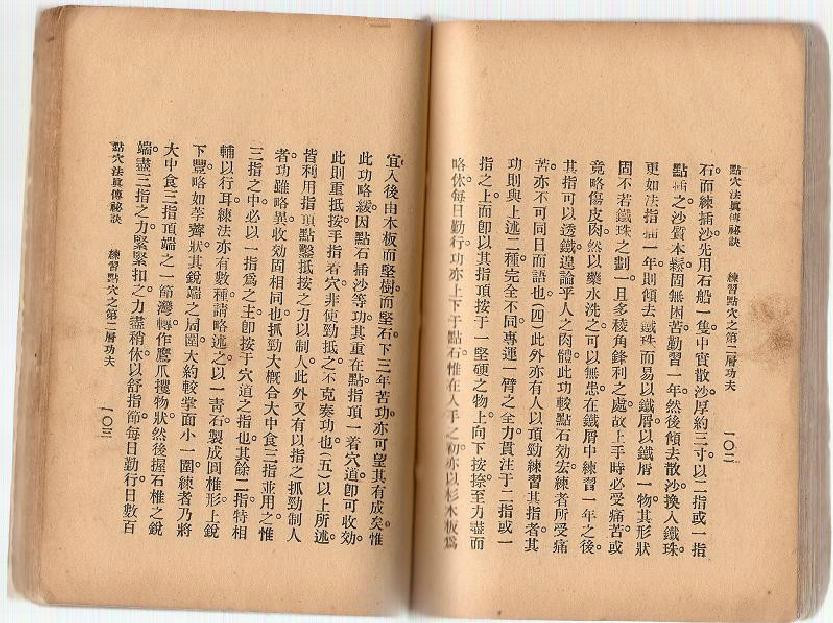 點穴法眞傳祕訣　練習點穴之第二層功夫　一〇二
石。而練插沙。先用石船一隻。中實散沙。厚約三寸。以二指或一指
點插之。沙質本鬆。固無困苦。勤習一年。然後傾去散沙。換入鐵珠。
更如法指插一年。則傾去鐵珠。而易以鐵屑。以鐵屑一物。其形狀
固不若鐵珠之劃一。且多稜角鋒利之處。故上手時必受痛苦。或
竟略傷皮肉。然以藥水洗之。可以無患。在鐵屑中練習一年之後。
其指可以透鐵。遑論乎人之肉體。此功較點石功效宏。練者所受痛
苦。亦不可同日而語也。(四)此外亦有人以頂勁練習其指者。其
功則與上述二種完全不同。專運一臂之全力。貫注于二指或一
指之上。而卽以其指頂按于一堅硬之物上。向下按捺。至力盡而
略休。每日勤行。功亦上下于點石。惟在入手之初。亦以杉木板爲
宜。入後由木板而堅樹。而堅石。下三年苦功。亦可望其有成矣。惟
此功略緩。因點石插沙等功。其重在點。指頂一着穴道。卽可收效。
此則重抵按。手指着穴。非使勁抵之。不克奏功也。(五)以上所述。
皆利用指頂點鑿抵按之力以制人。此外又有以指之抓勁制人
者。功雖略異。收效固相同也。抓勁大概合大中食三指並用之。惟
三指之中。必以一指爲之主。卽按于穴道之指也。其餘二指特相
輔以行耳。練法亦有數種。請略述之。以一靑石製成圓椎形。上銳
下豐。略如荸薺狀。其銳端之周圍。大約較掌面小一圍。練者乃將
大中食三指頂端之一節灣轉。作鷹爪攫物狀。然後握石椎之銳
端。盡三指之力。緊緊扣之。力盡稍休。以舒指節。每日勤行。日數百
點穴法眞傳祕訣　練習點穴之第二層功夫　一〇三